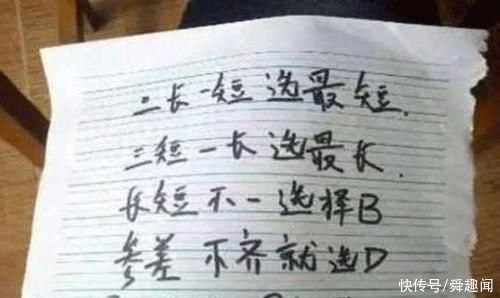 二长一短选最短.
三短一长选最长.
长短不一选择B
参差不齐就选D
快传号/舜趣闻